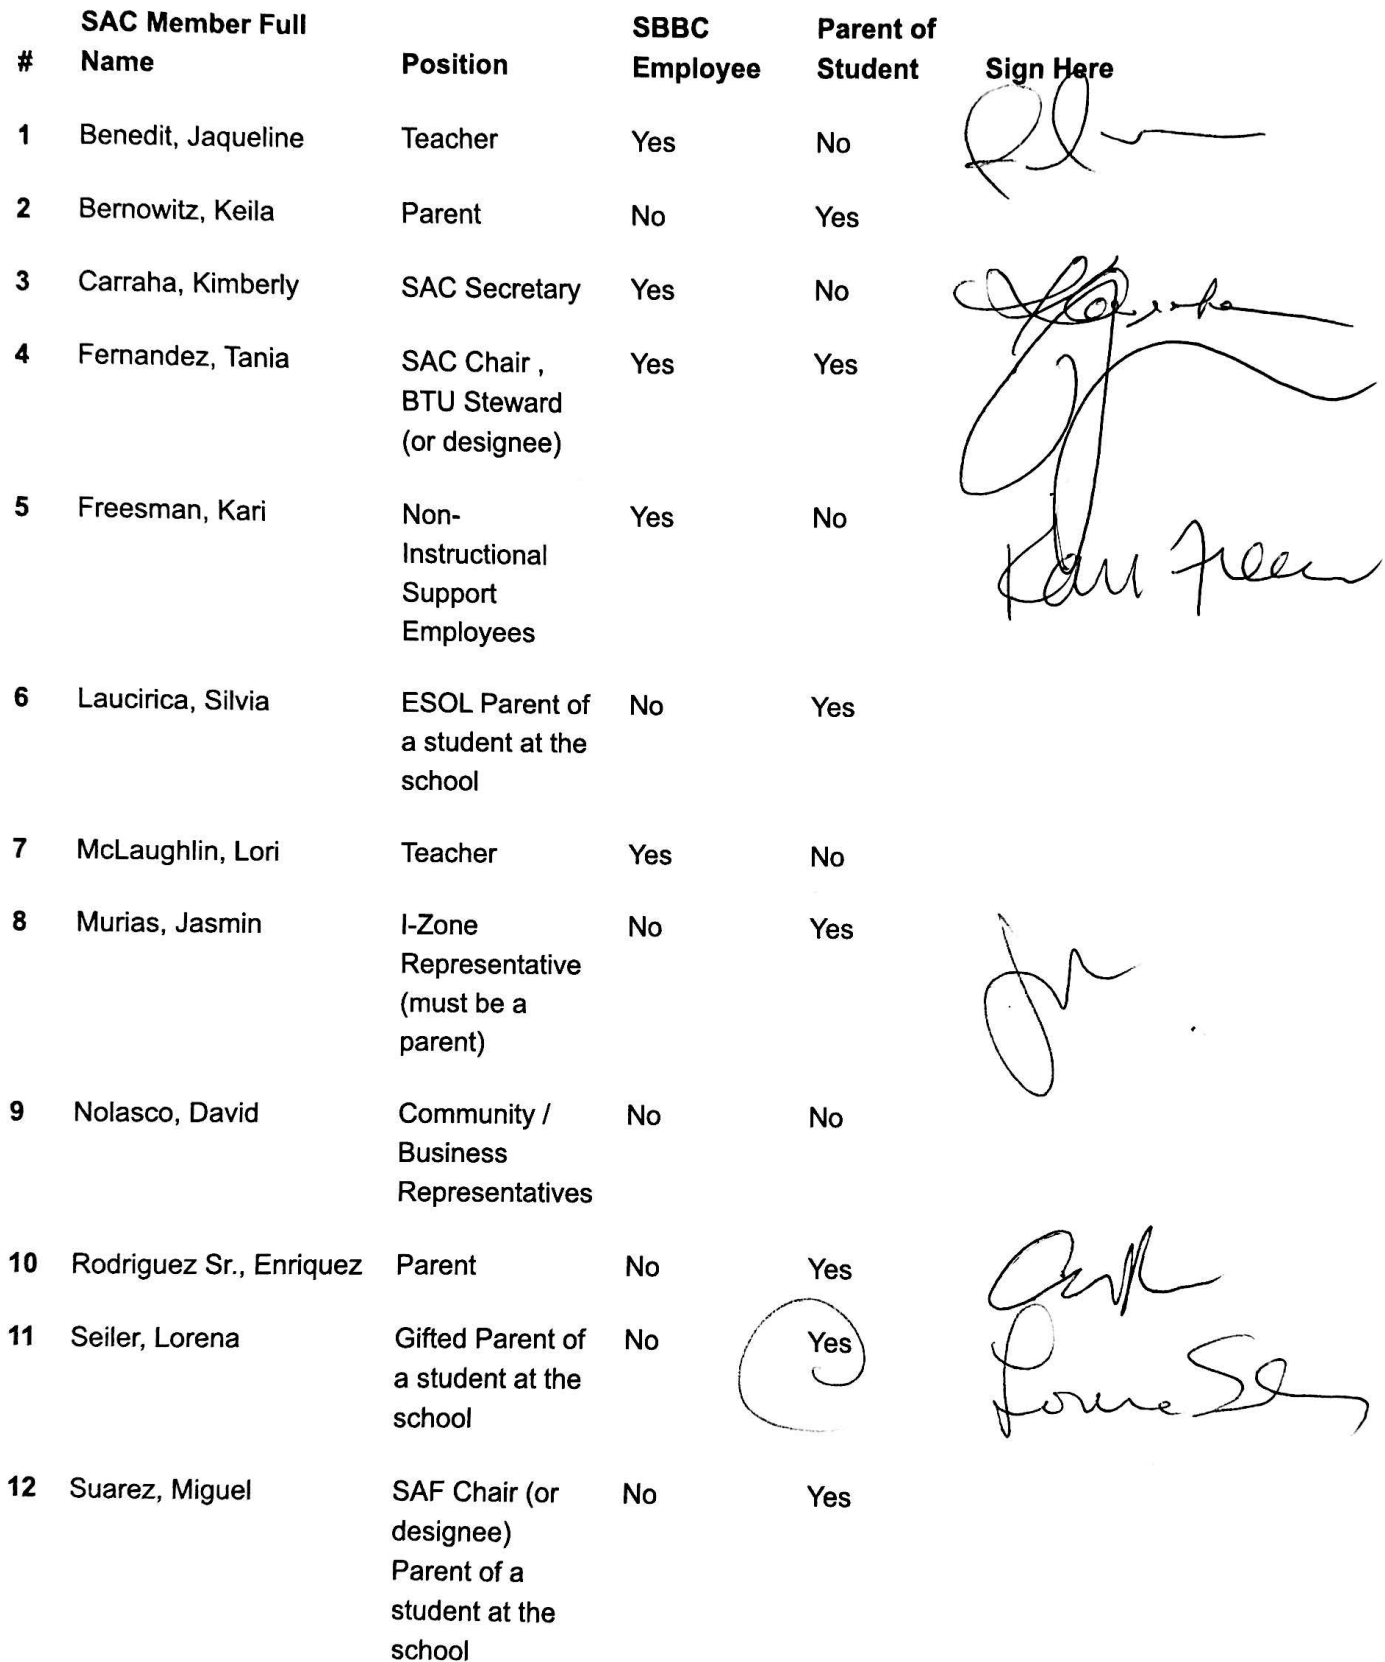 # SAC Member Full Name Position SBBC Employee Parent of Student Sign Here
1 Benedit, Jaqueline Teacher Yes No
2 Bernowitz, Keila Parent No Yes
3 Carraha, Kimberly SAC Secretary Yes No
4 Fernandez, Tania SAC Chair , Yes Yes
BTU Steward
(or designee)
5 Freesman, Kari Non- Yes No
Instructional
Support
Employees
Kari
6 Laucirica, Silvia ESOL Parent of No Yes
a student at the
school
7 McLaughlin, Lori Teacher Yes No
8 Murias, Jasmin I-Zone No Yes
Representative
(must be a
parent)
9 Nolasco, David Community / No No
Business
Representatives
10 Rodriguez Sr., Enriquez Parent No Yes
11 Seiler, Lorena Gifted Parent of No Yes
a student at the
school
12 Suarez, Miguel SAF Chair (or No Yes
designee)
Parent of a
student at the
school